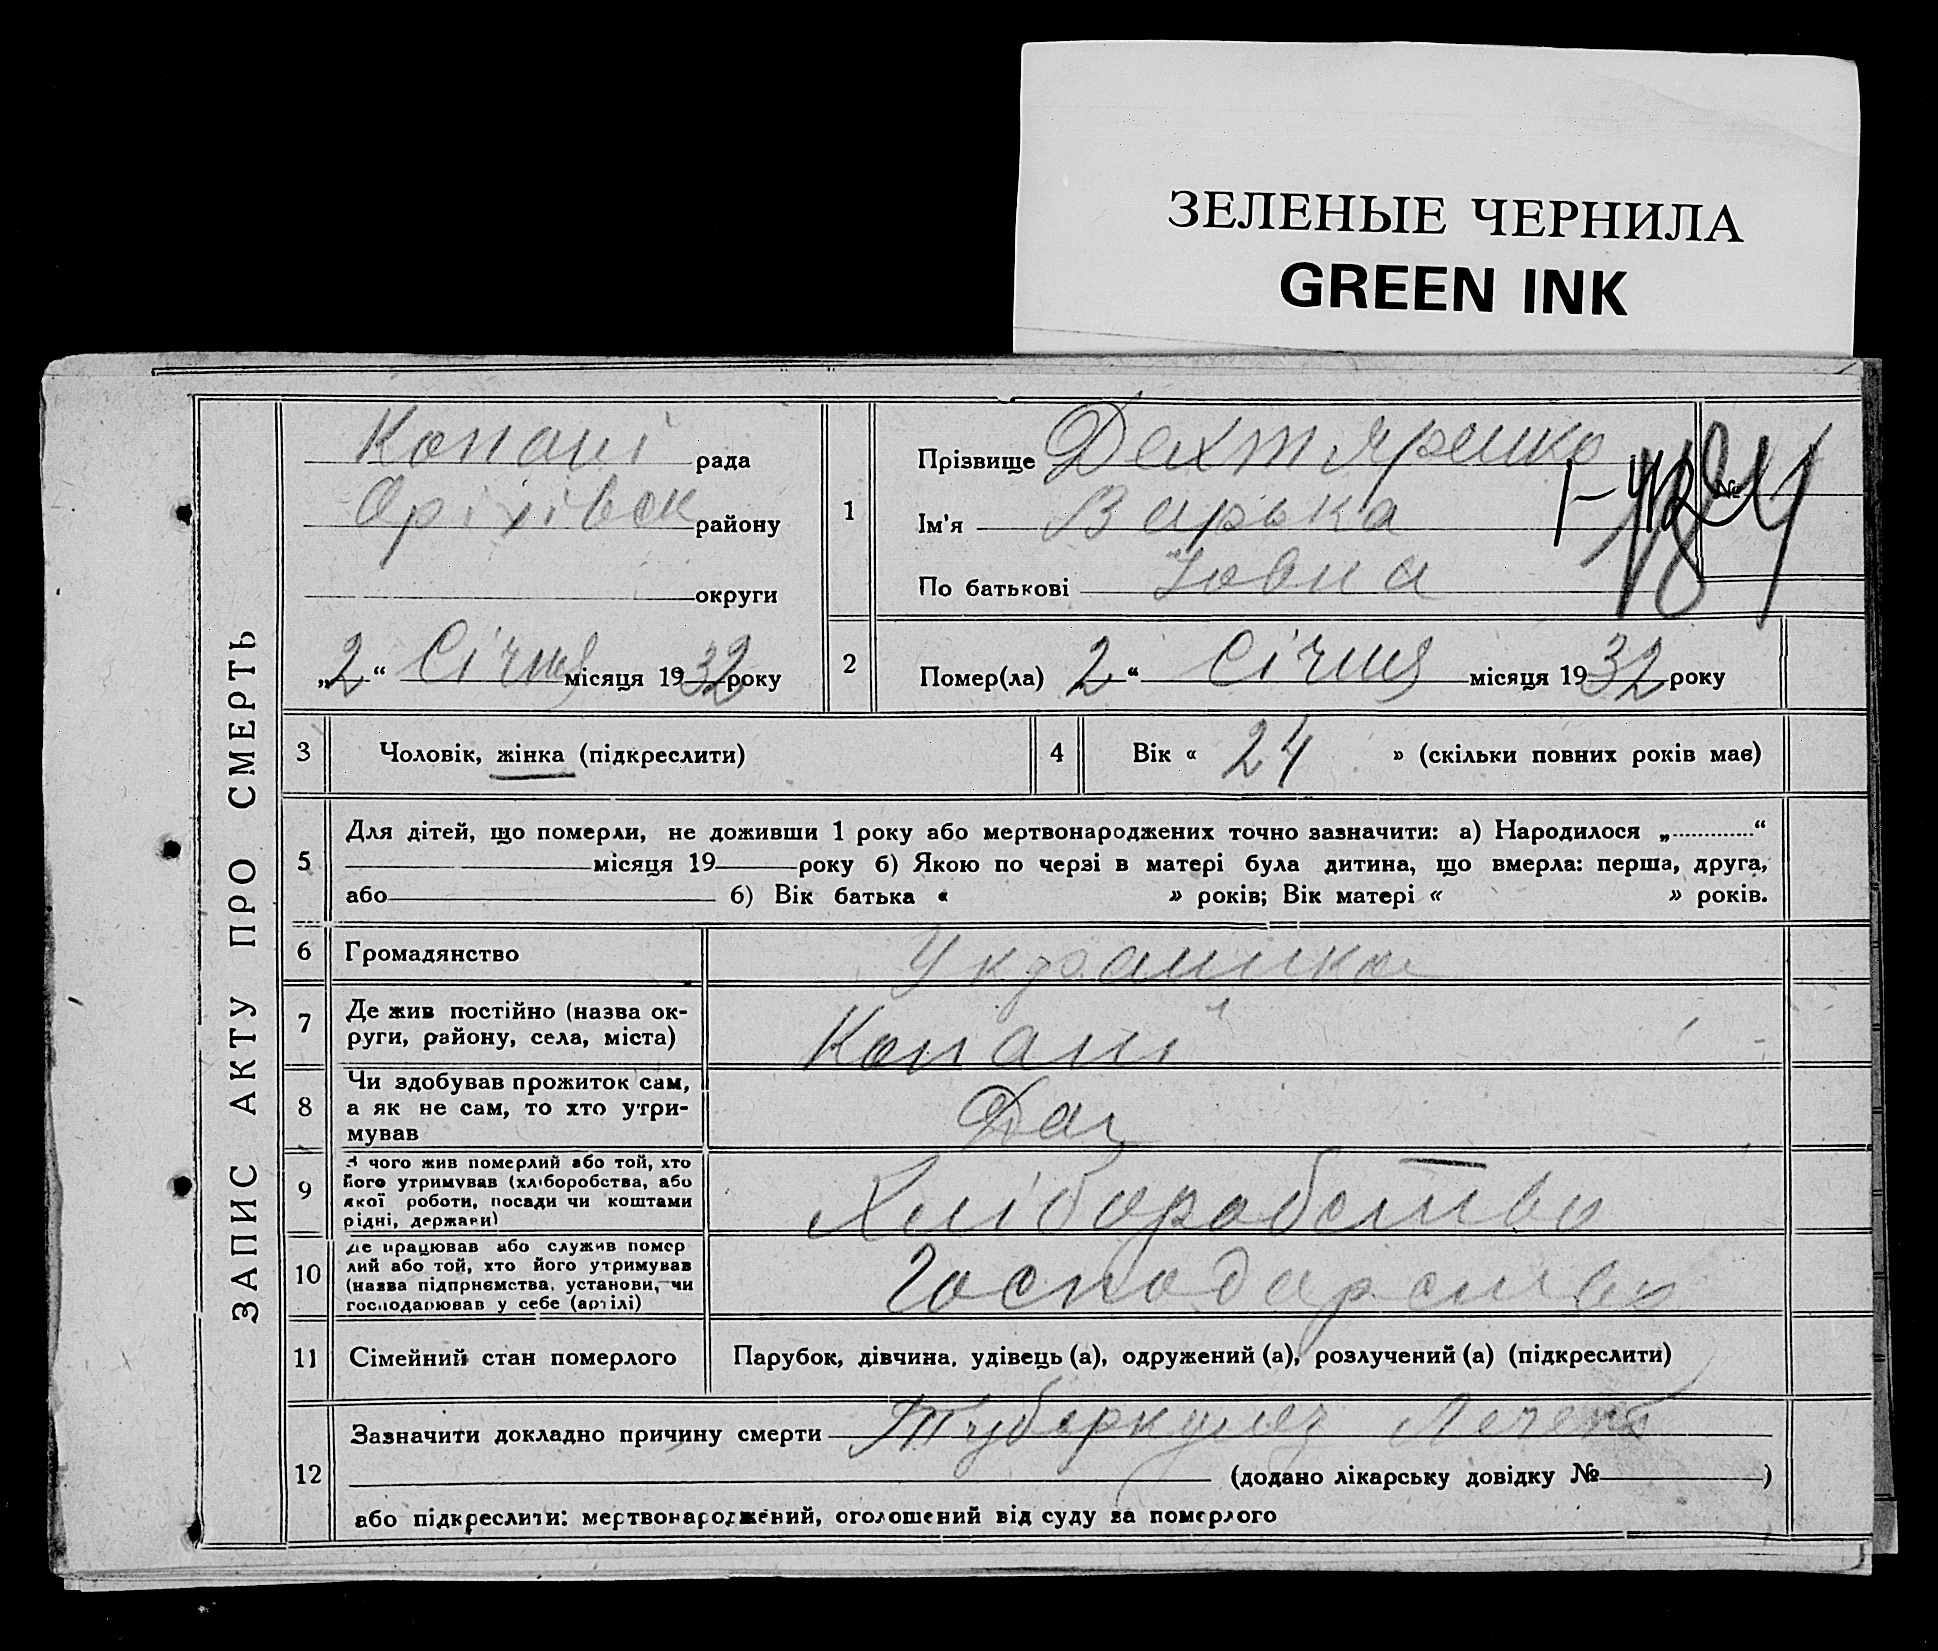 ЗЕЛЕНЫЕ ЧЕРНИЛА
GREEN INK
ЗАПИС АКТУ ПРО СМЕРТЬ
Копані рада
Оріхівск району
округи
„2“ Січня місяця 1932 року
1
Прізвище Дахтяренко
Ім'я Варька
По батькові Іовна
№
2
Помер(ла) 2“ Січня місяця 1932 року
3 Чоловік, жінка (підкреслити)
4 Вік « 24 » (скільки повних років має)
5
Для дітей, що померли, не доживши 1 року або мертвонароджених точно зазначити: а) Народилося „ “
місяця 19 року б) Якою по черзі в матері була дитина, що вмерла: перша, друга,
або б) Вік батька « » років; Вік матері « » років.
6 Громадянство Українка
7
Де жив постійно (назва ок-
руги, району, села, міста)
Копані
8
Чи здобував прожиток сам,
а як не сам, то хто утри-
мував
9
З чого жив померлий або той, хто
його утримував (хліборобства, або
якої роботи, посади чи коштами
рідні, держави)
Хліборобство
10
Де працював або служив помер
лий або той, хто його утримував
(назва підприємства, установи, чи
господарював у себе (артілі)
Господарство
11 Сімейний стан померлого Парубок, дівчина, удівець (а), одружений (а), розлучений (а) (підкреслити)
12
Зазначити докладно причину смерти Туберкульоз Легень
(додано лікарську довідку № )
або підкреслити: мертвонароджений, оголошений від суду за померлого